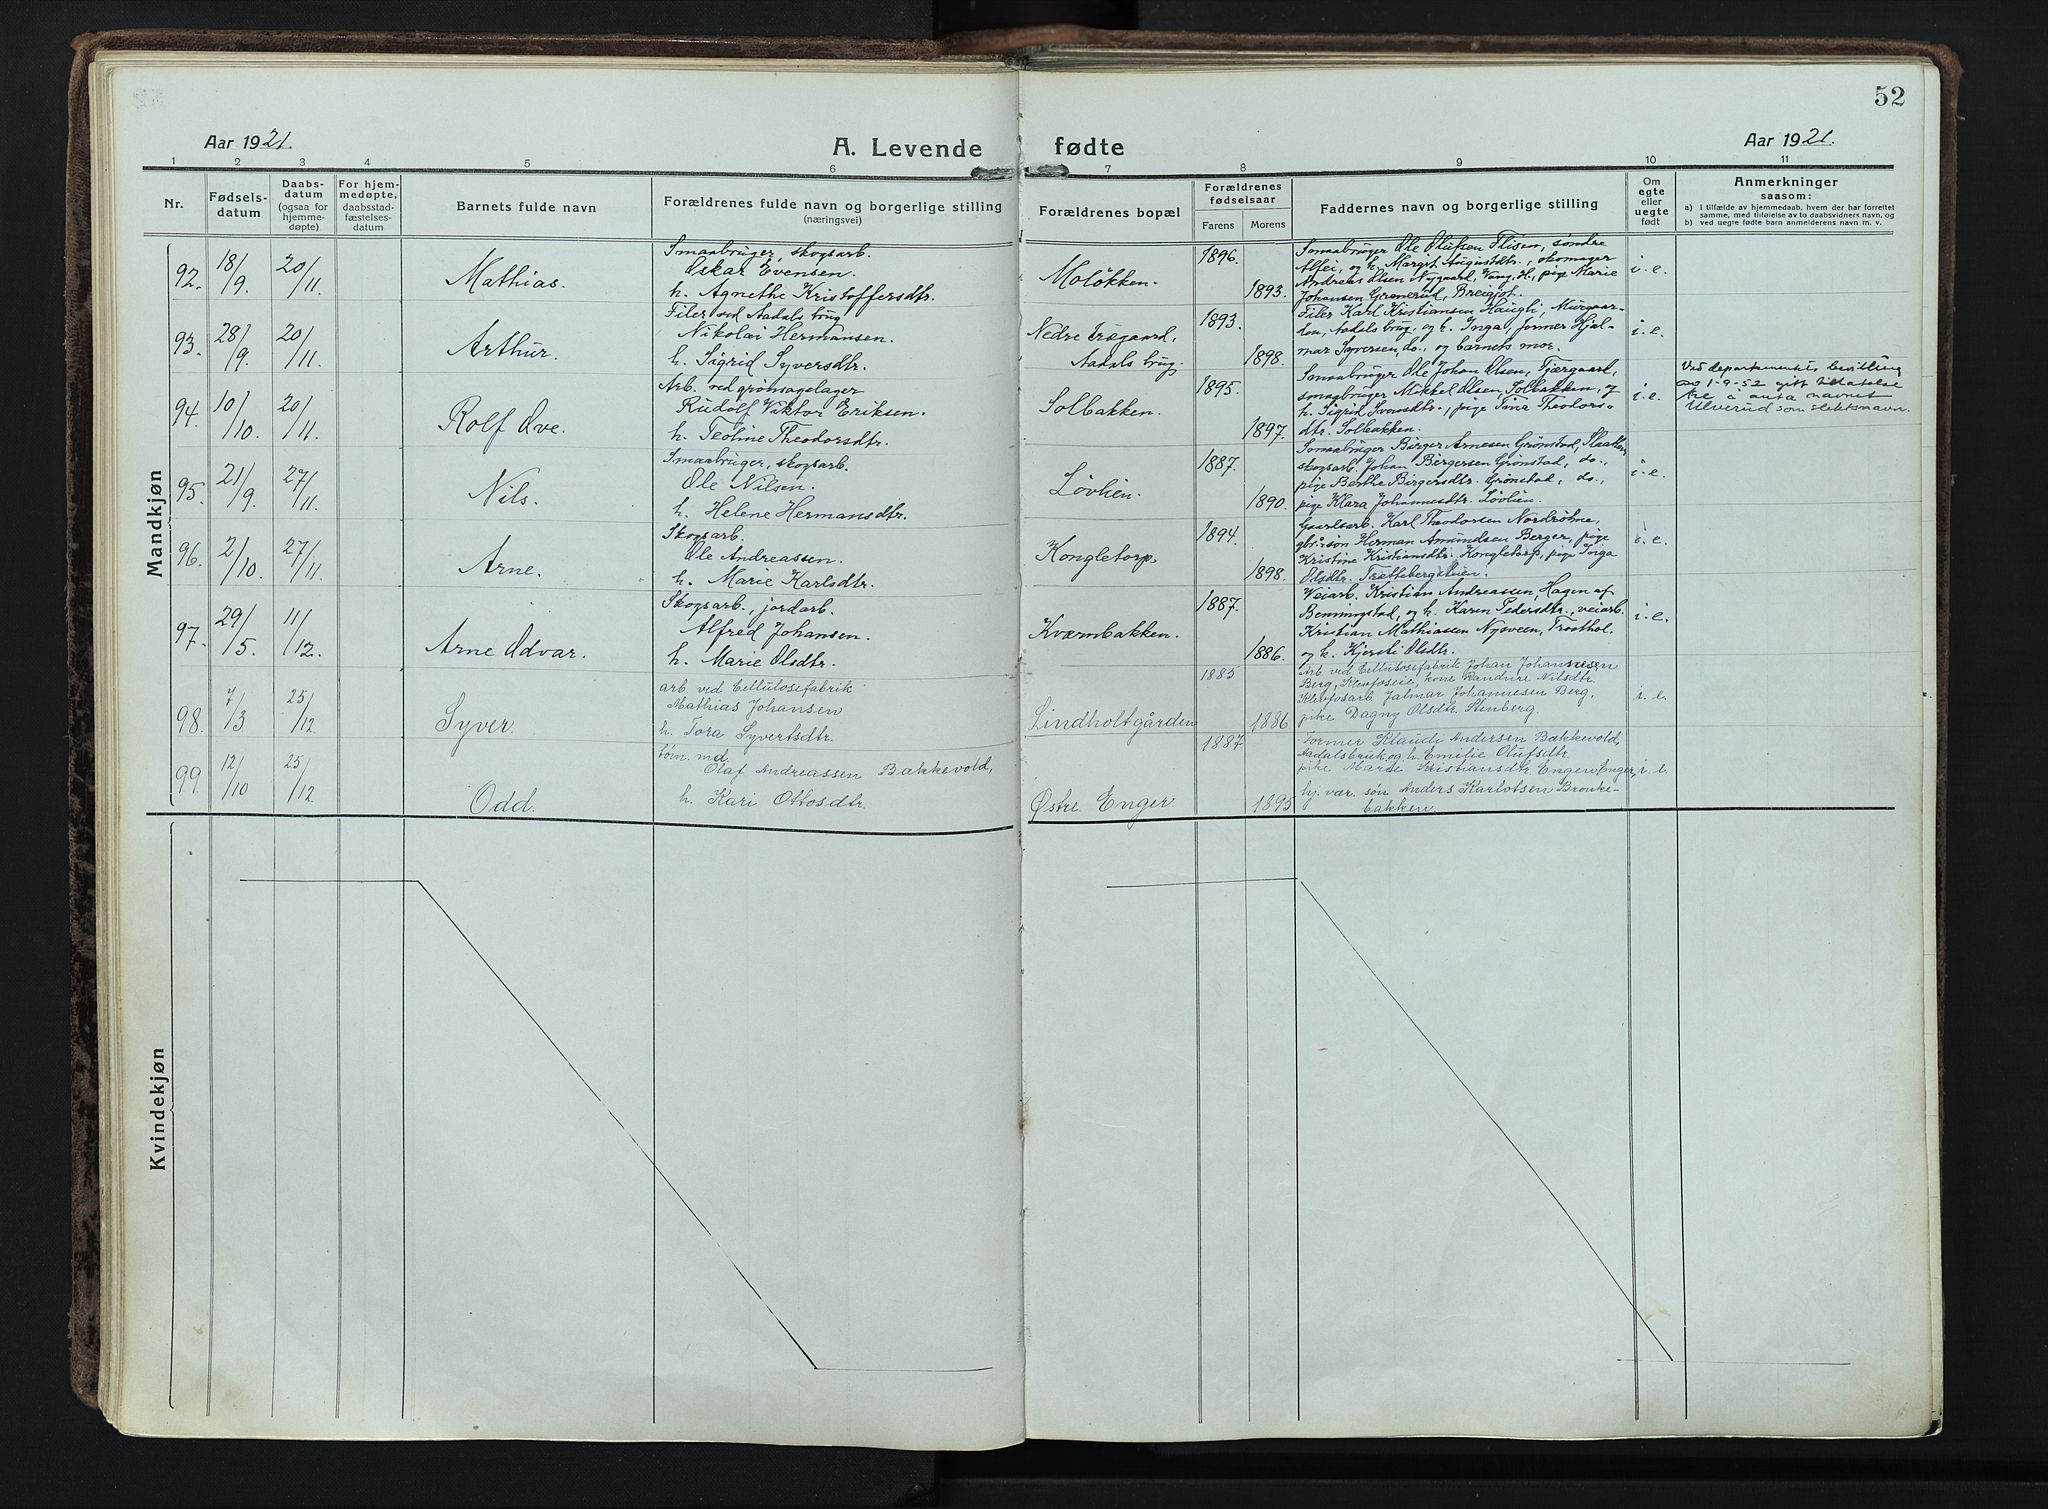 52
Aar 1921. A. Levende fødte Aar 1921.
1 2 3 4 5 6 7 8 9 10 11
Nr.
Fødsels-
datum
Daabs-
datum
(ogsaa for
hjemme-
døpte)
For hjem-
medøpte,
daabsstad-
fæstelses-
datum
Barnets fulde navn
Forældrenes fulde navn og borgerlige stilling
(næringsvei)
Forældrenes bopæl
Forældrenes
fødselsaar
Farens Morens
Faddernes navn og borgerlige stilling
Om
egte
eller
uegte
født
Anmerkninger
saasom:
a) I tilfælde av hjemmedaab, hvem der har forrettet
samme, med tilføielse av to daabsvidners navn, og
b) ved uegte fødte barn anmelderens navn m. v.
Mandkjøn
92. 18/9. 20/11. Mathias.
Smaabruger, skogsarb.
Oskar Evensen.
h. Agnethe Kristoffersdtr.
Moløkken.
1896. 1893.
Smaabruger Ole Olufsen Flisen, søndre
Alfei, og h. Margit Augustdtr., skomager
Andreas Olsen Nygaard, Vang, H., pige Marie
Johansen Grønerud, Breigoh.
i. e.
93. 28/9. 20/11. Arthur.
Filer ved Aadals brug
Nikolai Hermansen.
h. Sigrid Syversdtr.
Nedre
Aadals brug.
1893. 1898.
Filer Karl Kristiansen Haugli, Murgaar-
den, Aadals brug, og h. Inga, former Hjal-
mar Syversen, do., og barnets mor.
i. e.
94. 10/10. 20/11. Rolf Ove.
Arb. ved grønsagelager
Rudolf Viktor Eriksen.
h. Teoline Theodorsdtr.
Solbakken.
1895. 1897.
Smaabruger Ole Johan Olsen, Fjærgaard,
smaabruger Mikkel Olsen, Solbakken, og
h. Sigrid Svensdtr., pige Tina Theodors-
dtr. Solbakken.
i. e.
Ved departementets bevilling
av 1-9-52 gitt tillatelse
til å anta navnet
Ulverud som slektsnavn.
95. 21/9. 27/11. Nils.
Smaabruger, skogsarb.
Ole Nilsen.
h. Helene Hermansdtr.
Løvlien.
1887. 1890.
Smaabruger Birger Arnesen Grønstad, Slaatten,
skogsarb. Johan Bergersen Grønstad, do.,
pige Berthe Birgersdtr. Grønstad, do.,
pige Klara Johannesdtr. Løvlien.
i. e.
96. 2/10. 27/11. Arne.
Skogsarb.
Ole Andreassen.
h. Marie Karlsdtr.
Kongletorp.
1894. 1898.
Gaardsarb. Karl Theodorsen Nordrøhne,
gbr.søn Herman Amundsen Berger, pige
Kristine Kristiansdtr. Kongletorp, pige Inga
Olsdtr. Trættebergslien.
i. e.
97. 29/5. 11/12. Arne Odvar.
Skogsarb., jordarb.
Alfred Johansen.
h. Marie Olsdtr.
Kværnbakken.
1887. 1886.
Veiarb. Kristian Andreassen, Hagen af
Benningstad, og h. Karen Pedersdtr., veiarb.
Kristian Mathiassen Nysveen, Tronthol,
og h. Kjersti Olsdtr.
i. e.
98. 7/3 25/12 Syver.
arb. ved Cellulosefabrik
Mathias Johansen
h. Tora Syvertsdtr.
Lindholtgården
1885 1886
Arb. ved Cellulosefabrik Johan Johannesen
Berg, Klevfoseie, kone Randine Nilsdtr.
Klevfosarb. Jalmar Johannesen Berg,
pike Dagny Olsdtr. Stenberg
i. e.
99. 12/10 25/12 Odd.
tøm. md.
Olaf Andreassen Bækkevold,
h. Kari Ottosdtr.
Østre Enger
1887. 1895
Former Klaudi Andersen Bækkevold,
Aadalsbruk og h. Emilie Olufsdtr.
pike Marie Kristiansdtr. Engen, Enger,
hj. vær. søn Anders Karlotsen Bronke-
bakken.
i. e.
Kvindekjøn